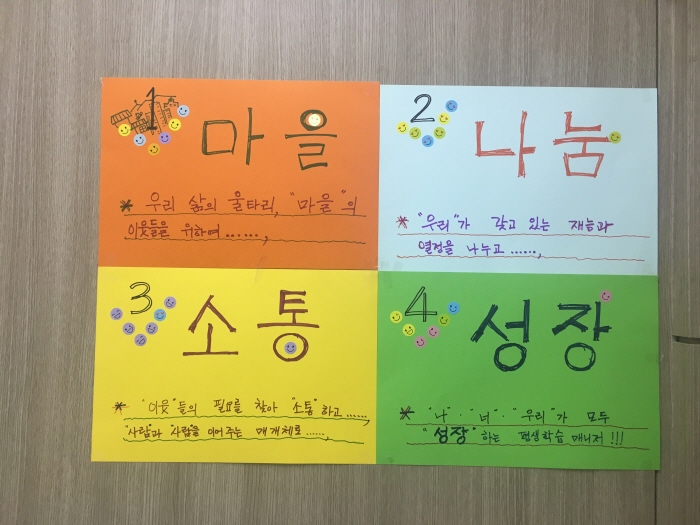 1 마을
* 우리 삶의 울타리, "마을"의
이웃들을 위하여……,
2 나눔
* "우리"가 갖고 있는 재능과
열정을 나누고……,
3 소통
* "이웃"들의 필요를 찾아 "소통"하고……,
"사람"과 "사람"을 이어주는 매개체로……,
4 성장
* "나"·"너"·"우리"가 모두
"성장"하는 평생학습 매니저!!!